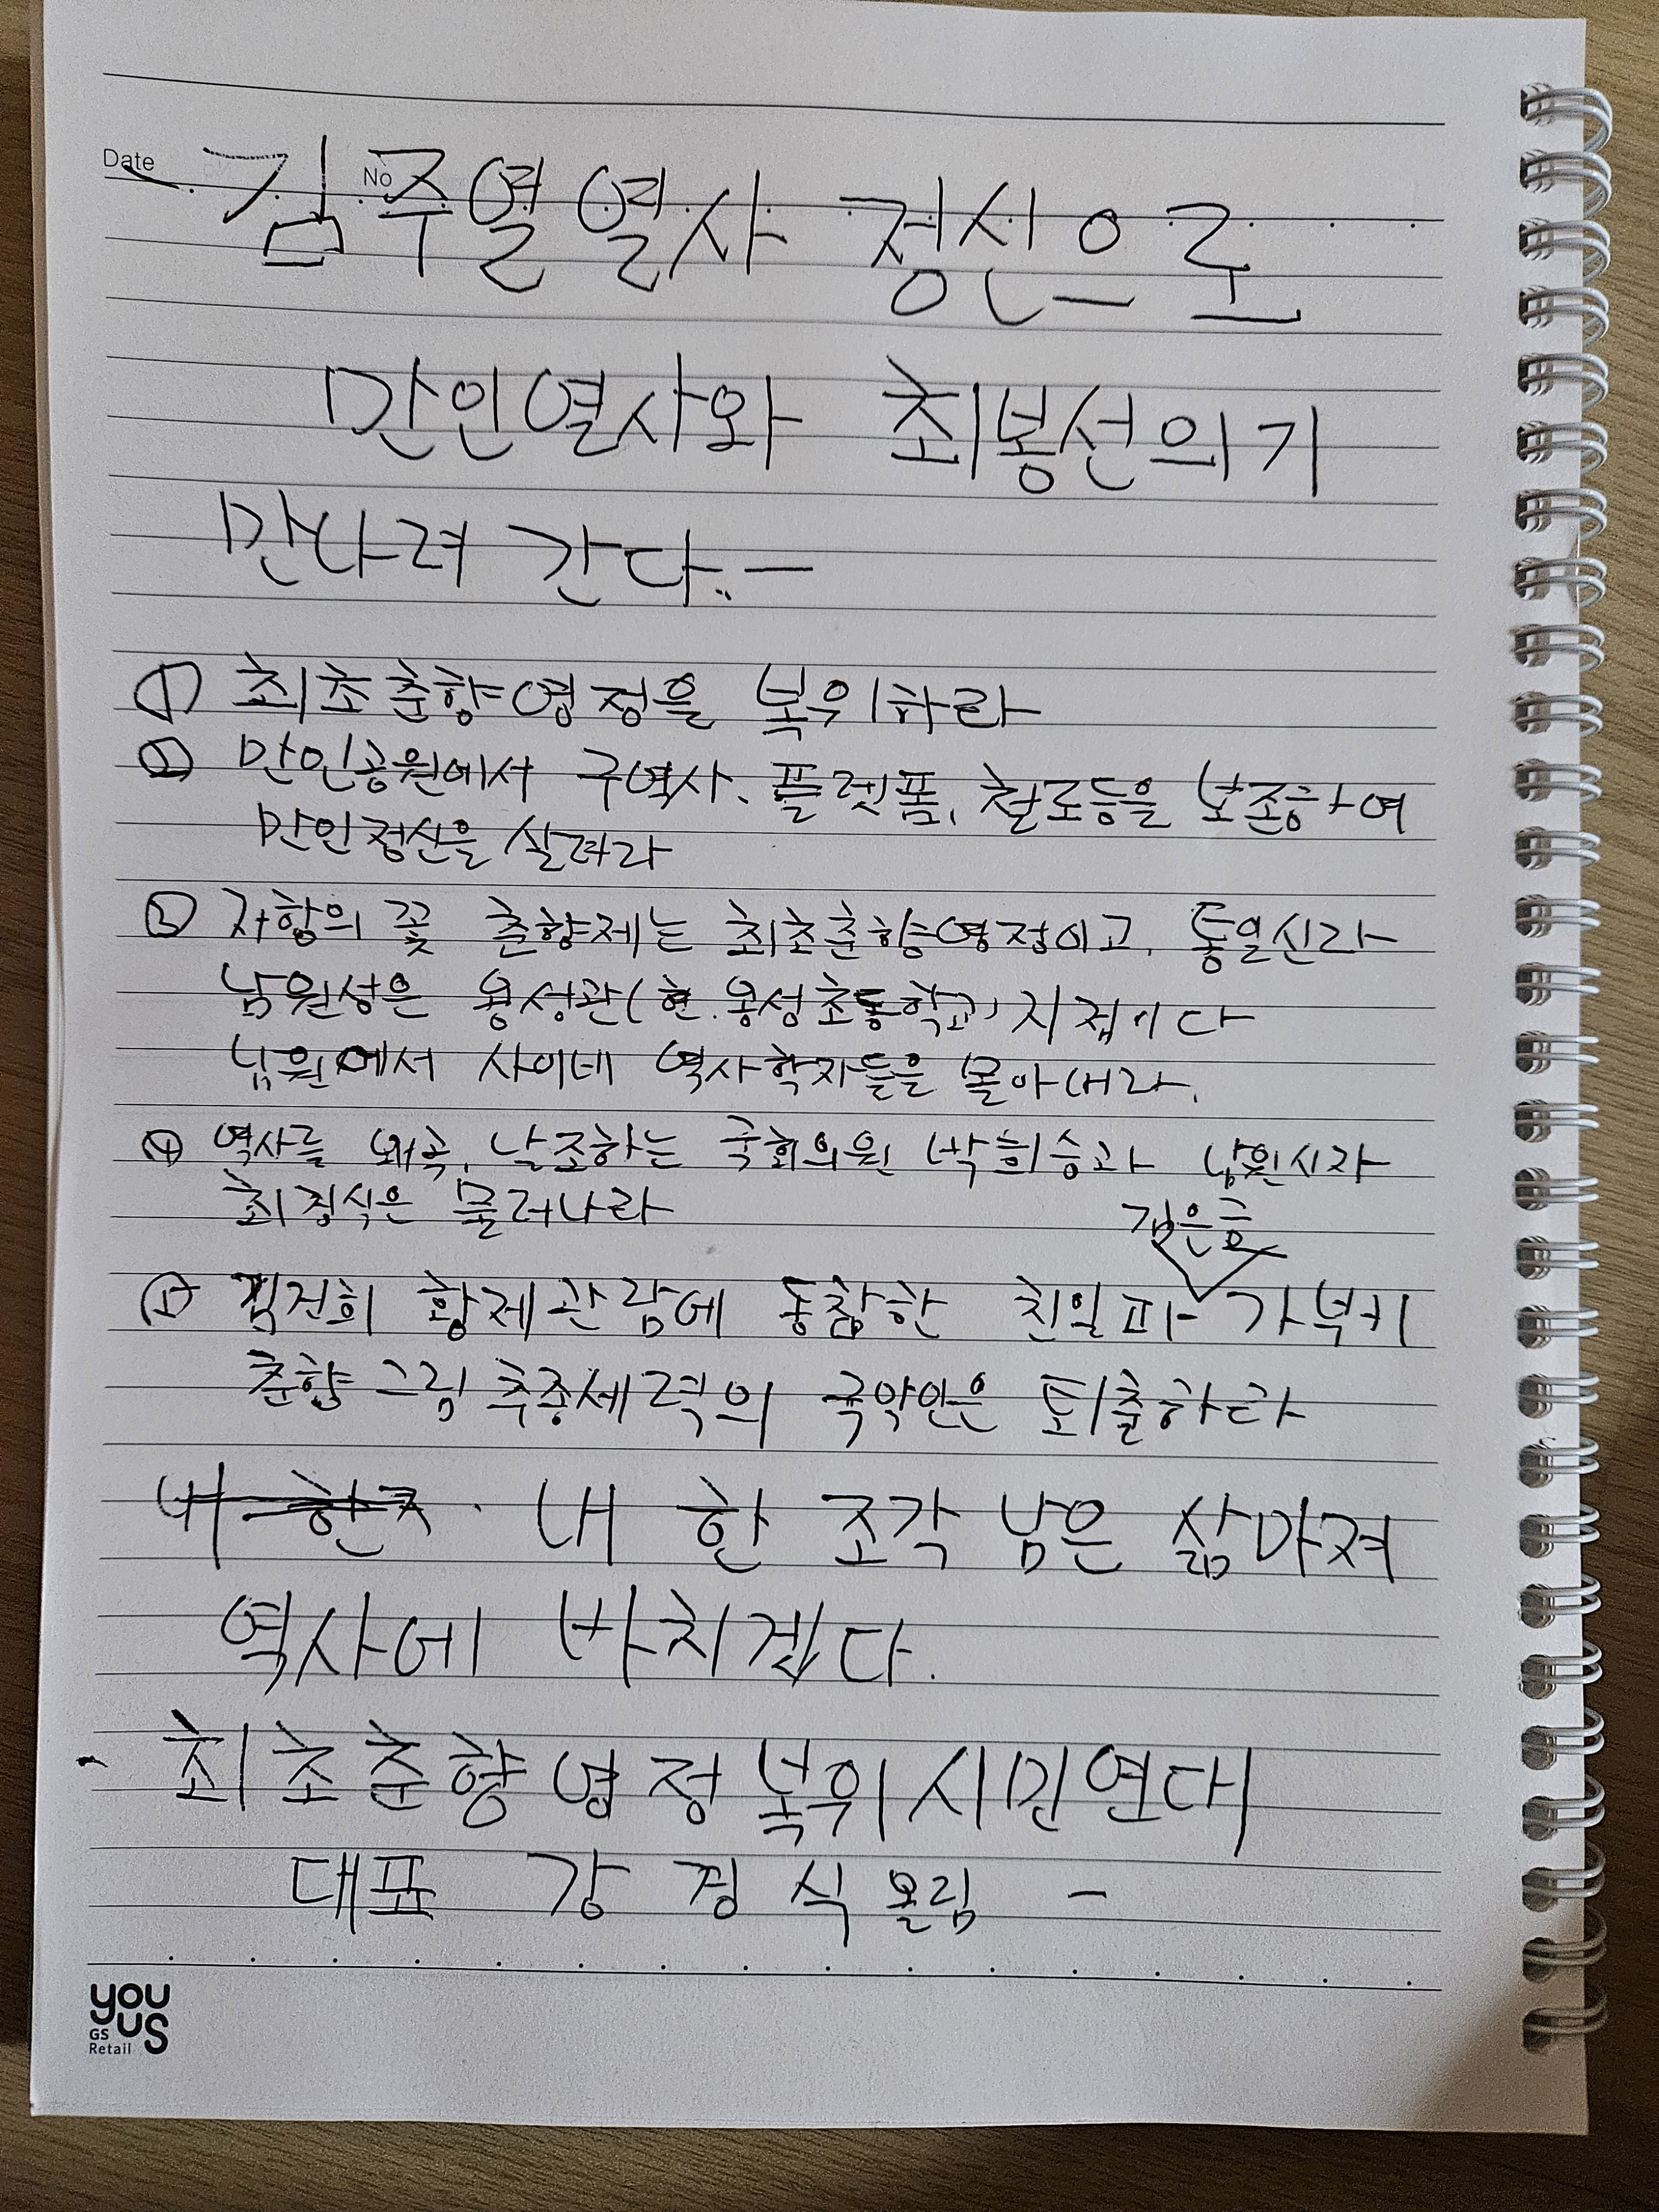 Date
No
김주열열사 정신으로
만인열사와 최봉선의기
만나러 간다.-
① 최초춘향영정을 복위하라
② 만인공원에서 구역사, 플렛폼, 철로등을 보존하여
만인정신을 살려라
③ 저항의 꽃 춘향제는 최초춘향영정이고, 통일신라
남원성은 용성관(현.용성초등학교) 지점이다
남원에서 사이비 역사학자들을 몰아내라.
④ 역사를 왜곡, 날조하는 국회의원 박희승과 남원시장
최경식은 물러나라
김은호
김건희 황제관람에 동참한 친일파 가부키
춘향그림 추종세력의 국악인은 퇴출하라
내 한 조각 남은 삶마저
역사에 바치겠다.
- 최초춘향영정복위시민연대
대표 강경식올림 -
you
us
GS
Retail